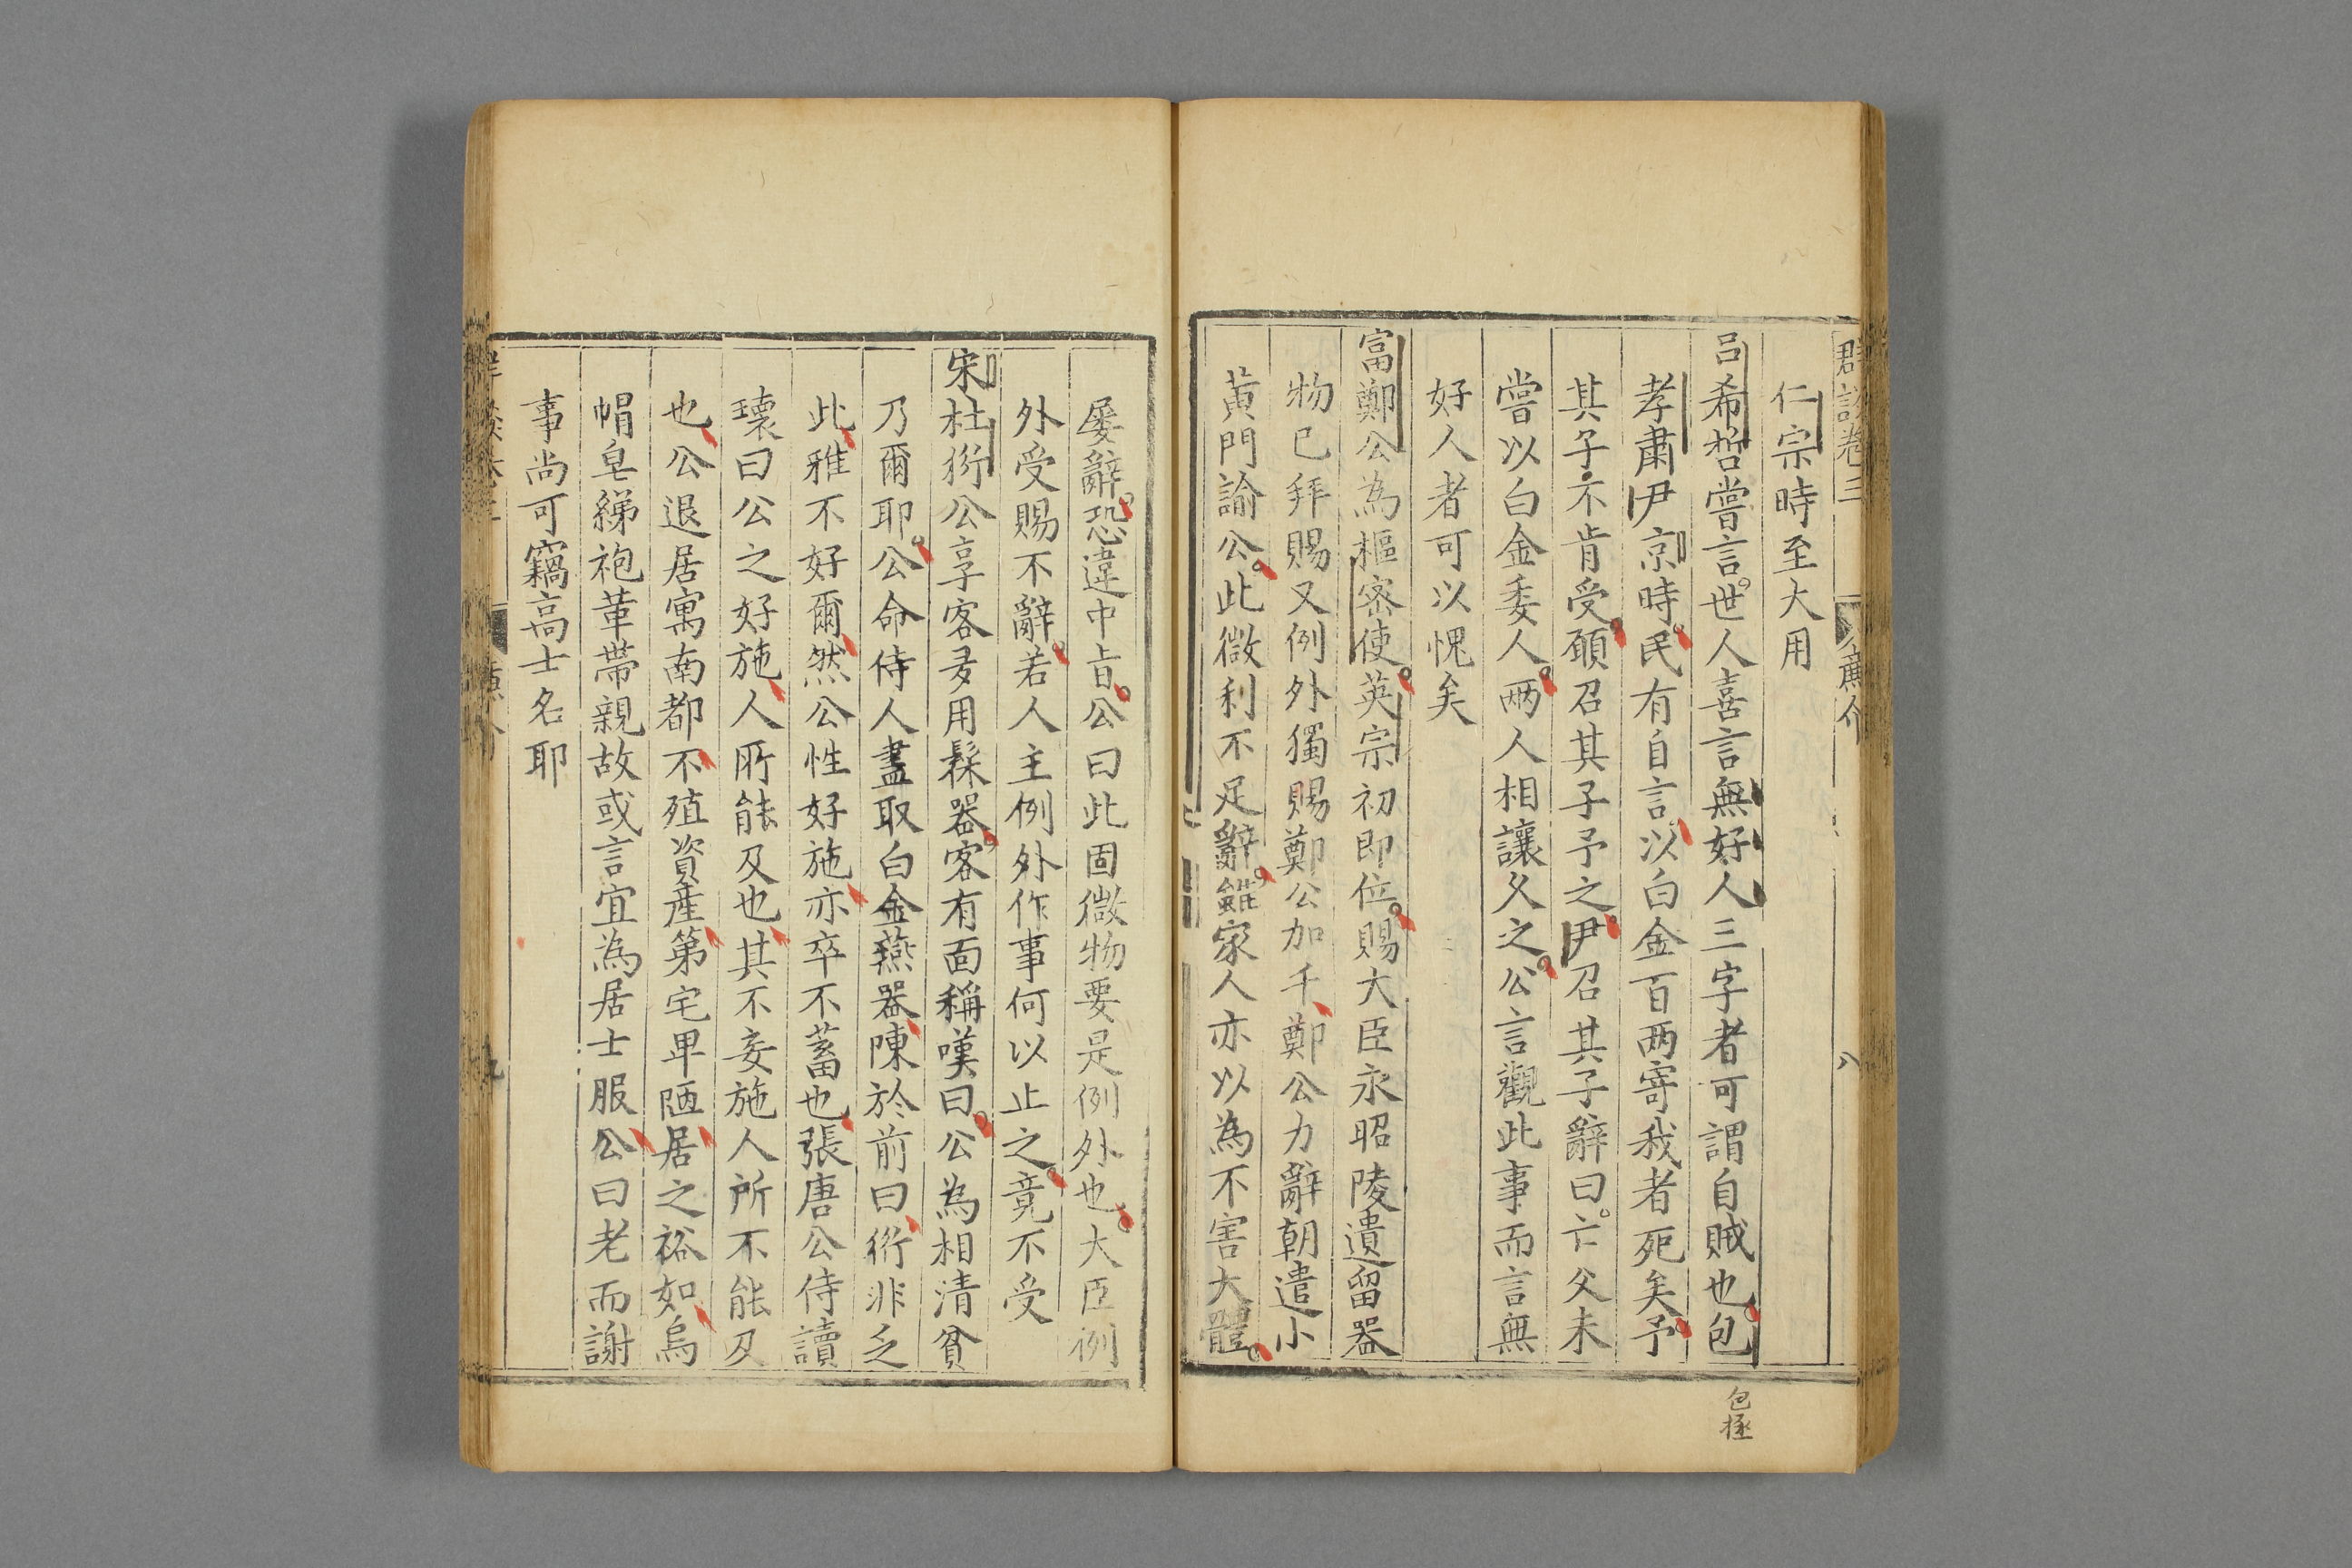 群談卷三 廉介 八
仁宗時至大用
呂希哲嘗言世人喜言無好人三字者可謂自賊也包
孝肅尹京時民有自言以白金百两寄我者死矣予
其子不肯受願召其子予之尹召其子辭曰亡父未
嘗以白金委人两人相讓久之公言觀此事而言無
好人者可以愧矣
富鄭公為樞密使英宗初即位賜大臣永昭陵遺留器
物已拜賜又例外獨賜鄭公加千鄭公力辭朝遣小
黃門諭公此微利不足辭雖家人亦以為不害大體
包拯
屡辭恐違中㫖公曰此固微物要是例外也大臣例
外受賜不辭若人主例外作事何以止之竟不受
宋杜衍公享客多用髹器客有面稱嘆曰公為相清貧
乃爾耶公命侍人盡取白金燕器陳於前曰衍非乏
此雅不好爾然公性好施亦卒不蓄也張唐公侍讀
瓌曰公之好施人所能及也其不妄施人所不能及
也公退居寓南都不殖資產第宅卑陋居之裕如烏
帽皂綈袍革帶親故或言宜為居士服公曰老而謝
事尚可竊高士名耶